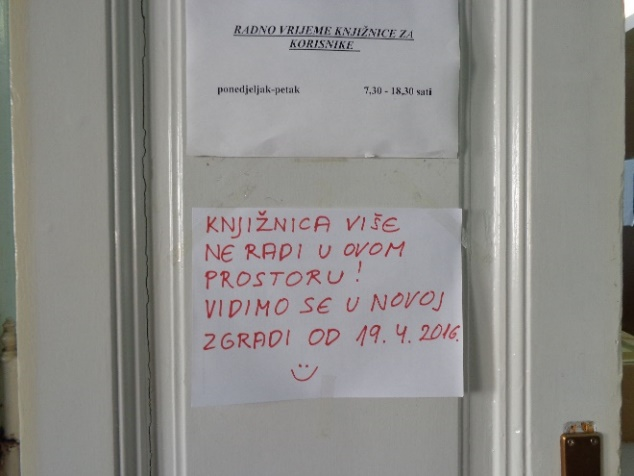 RADNO VRIJEME KNJIŽNICE ZA
KORISNIKE
ponedjeljak-petak 7,30 - 18,30 sati
KNJIŽNICA VIŠE
NE RADI U OVOM
PROSTORU!
VIDIMO SE U NOVOJ
ZGRADI OD 19. 4. 2016.